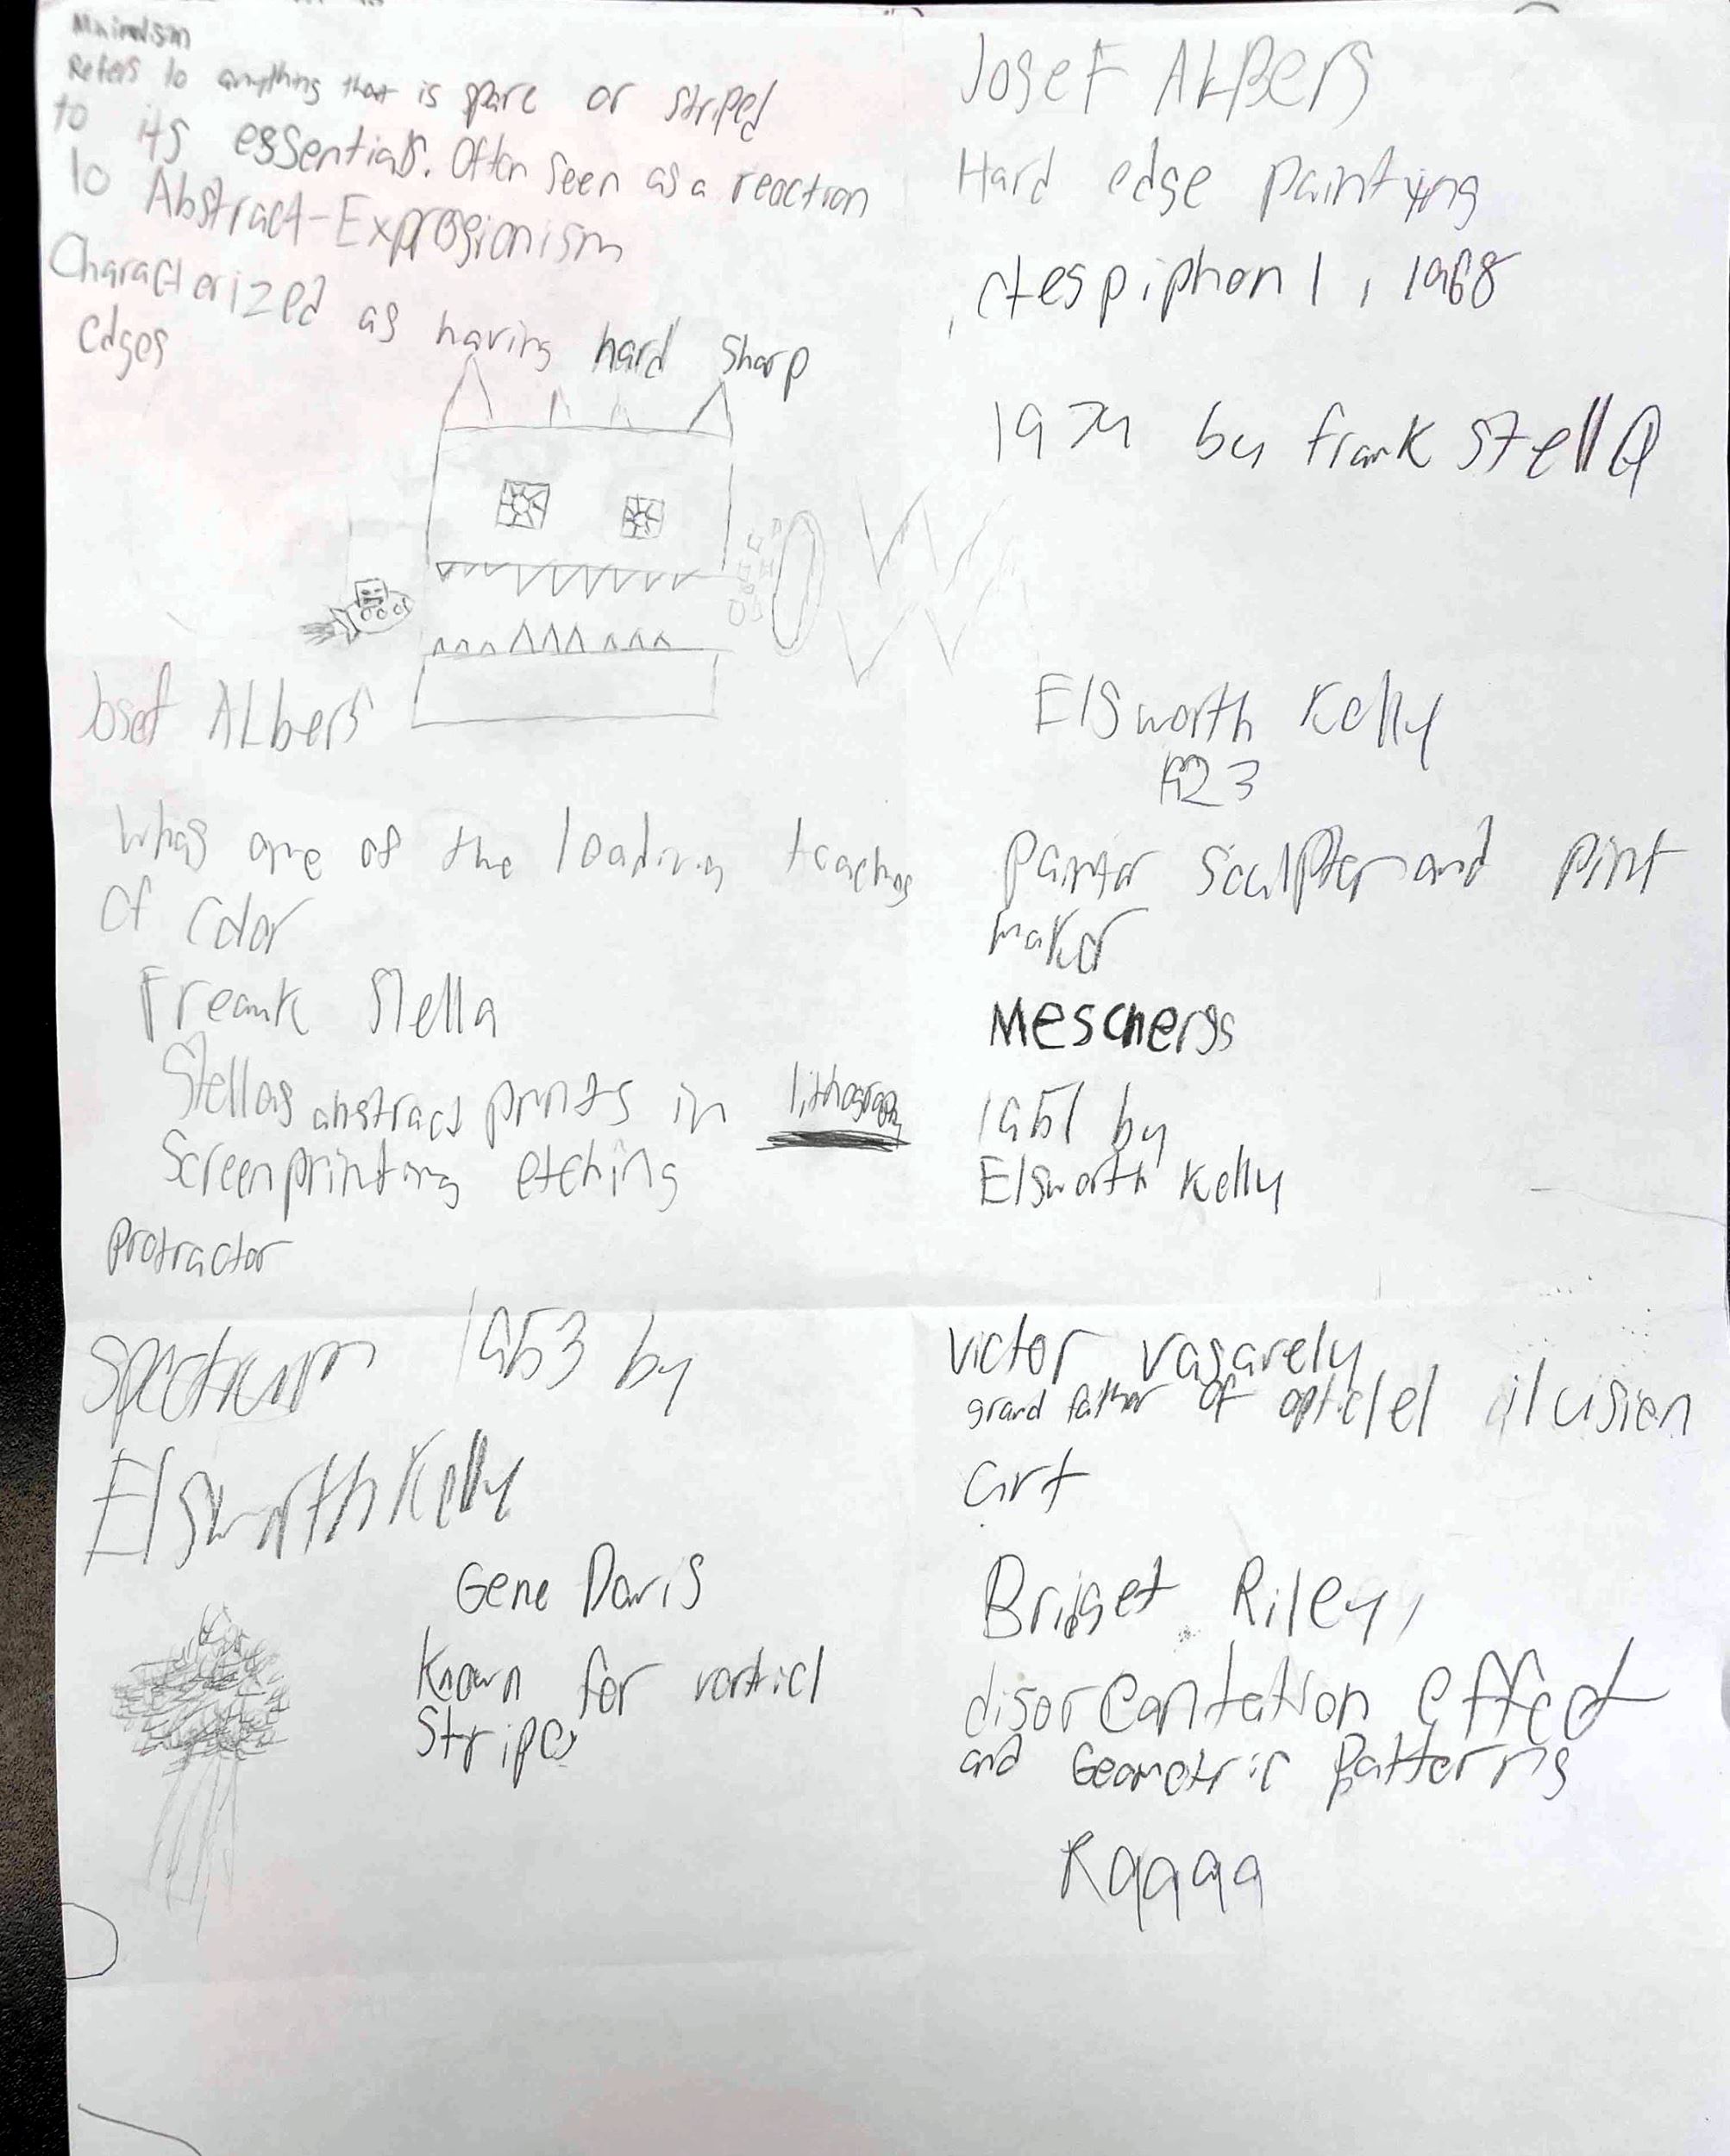 Minimalism
Refers to anything that is spare or striped
to its essentials. Often seen as a reaction
to Abstract-Expresionism
Characterized as having hard sharp
edges
Josef ALbers
Whas one of the leading teachers
of color
Freank Stella
Stellas abstract prints in lithograph
Screenprinting etching
Protractor
Spectrum 1953 by
Elsworth Kelly
Gene Davis
Known for verticl
Stripes
Josef ALBers
Hard edge painting
ctespiphon 1, 1968
1974 by frank stella
Elsworth Kelly
1923
painter sculpter and pint
maker
Meschers
1951 by
Elsworth Kelly
victor vasarely
grand father of opticlel ilusion
art
Bridget Riley,
disoreantation effect
and Geometric patterns
Raaaa